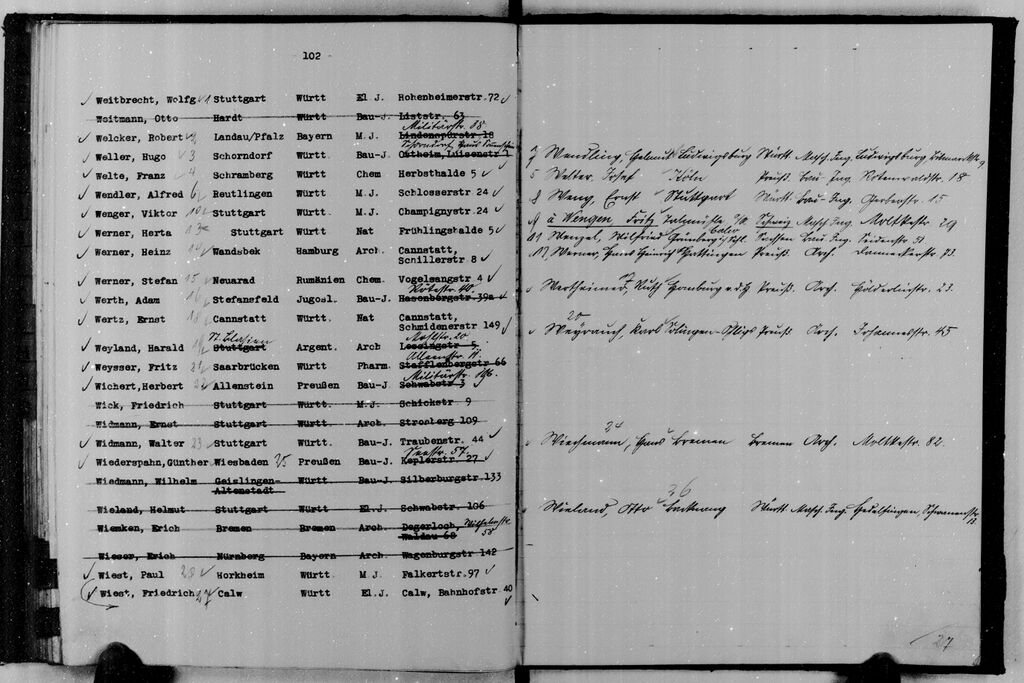 102
Weitbrecht, Wolfg 1 Stuttgart Württ El J. Hohenheimerstr.72
Weitmann, Otto Hardt Württ Bau-J. Liststr. 63
Militärstr. 88
Welcker, Robert Landau/Pfalz Bayern M.J. Lindenspürstr 18
Schorndorf, Haus
Weller, Hugo 3 Schorndorf Württ Bau-J Ostheim, Luisenstr 1
Welte, Franz 4 Schramberg Württ Chem Herbsthalde 5
Wendler, Alfred 6 Reutlingen Württ M.J. Schlosserstr 24
Wenger, Viktor 10 Stuttgart Württ M.J. Champignystr 24
Werner, Herta 13 Stuttgart Württ Nat Frühlingshalde 5
Werner, Heinz Wandsbek Hamburg Arch. Cannstatt,
Schillerstr 8
Werner, Stefan 15 Neuarad Rumänien Chem Vogelsangstr 4
Rötestr. 40.
Werth, Adam 16 Stefansfeld Jugosl. Bau-J. Hasenbergstr 39a
Wertz, Ernst 18 Cannstatt Württ Nat Cannstatt,
Schmidenerstr 149
St. Blasien Moststr. 20
Weyland, Harald Stuttgart Argent. Arch Lessingstr 5
Alleenstr 11.
Weysser, Fritz 21 Saarbrücken Württ Pharm. Stafflenbergstr 66
Militärstr. 116.
Wichert,Herbert Allenstein Preußen Bau-J Schwabstr 3
Wick, Friedrich Stuttgart Württ. M.J. Schickstr 9
Widmann, Ernst Stuttgart Württ Arch. Stromberg 109
Widmann, Walter 23 Stuttgart Württ Bau-J. Traubenstr. 44
Seestr. 57.
Wiederspahn,Günther Wiesbaden 25 Preußen Bau-J. Keplerstr 27
Wiedmann, Wilhelm Geislingen- Württ Bau-J Silberburgstr 133
Altenstadt
Wieland, Helmut Stuttgart Württ El.J. Schwabstr 106
Wiemken, Erich Bremen Bremen Arch Degerloch, Wilhelmstr.
Waldau 68 58
Wieser, Erich Nürnberg Bayern Arch. Wagenburgstr 142
Wiest, Paul 28 Horkheim Württ M J. Falkertstr.97
Wiest, Friedrich 27 Calw Württ El.J. Calw, Bahnhofstr 40
7 Wendling, Helmut Ludwigsburg Württ Masch. Ing. Ludwigsburg
5 Welter, Josef Köln Preuß. Bau Ing. Rotenwaldstr. 18
8 Weng, Ernst Stuttgart Württ. Bau-Ing. Gerberstr. 15
9 à Wengen Fritz Schweiz Masch Ing. Moltkestr. 29
11 Wenzel, Wilfried Grünberg Schl. Sachsen Bau Ing. Seidenstr. 51.
Werner, Hans Heinrich Hattingen Preuß. Arch. Danneckerstr.
17
Wertheimer, Ruth Homburg v.d.H Preuß. Arch. Hölderlinstr. 23.
20
Weyrauch, Karl Preuß Arch. Johannesstr. 45
24
Wiechmann, Hans Bremen Bremen Arch. Moltkestr. 82.
26
Wieland, Otto Backnang Württ. Masch. Ing. Hedelfingen,
27